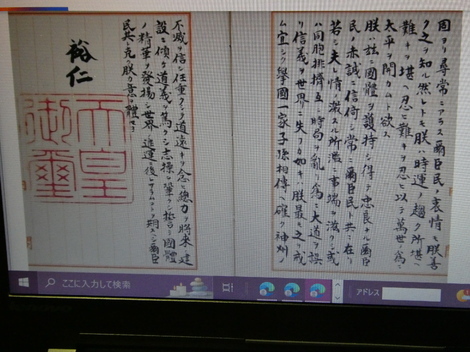 固ヨリ尋常ニアラス爾臣民ノ衷情モ朕善
ク之ヲ知ル然レトモ朕ハ時運ノ趨ク所堪ヘ
難キヲ堪ヘ忍ヒ難キヲ忍ヒ以テ萬世ノ爲ニ
太平ヲ開カムト欲ス
朕ハ茲ニ國體ヲ護持シ得テ忠良ナル爾臣
民ノ赤誠ニ信倚シ常ニ爾臣民ト共ニ在リ
若シ夫レ情ノ激スル所濫ニ事端ヲ滋クシ或
ハ同胞排擠互ニ時局ヲ亂リ爲ニ大道ヲ誤
リ信義ヲ世界ニ失フカ如キハ朕最モ之ヲ戒
ム宜シク擧國一家子孫相傳ヘ確ク神州ノ
不滅ヲ信シ任重クシテ道遠キヲ念ヒ總力ヲ將來ノ建
設ニ傾ケ道義ヲ篤クシ志操ヲ鞏クシ誓テ國體
ノ精華ヲ發揚シ世界ノ進運ニ後レサラムコトヲ期スヘシ爾臣
民其レ克ク朕カ意ヲ體セヨ
裕仁
天皇
御璽
ここに入力して検索
アドレス